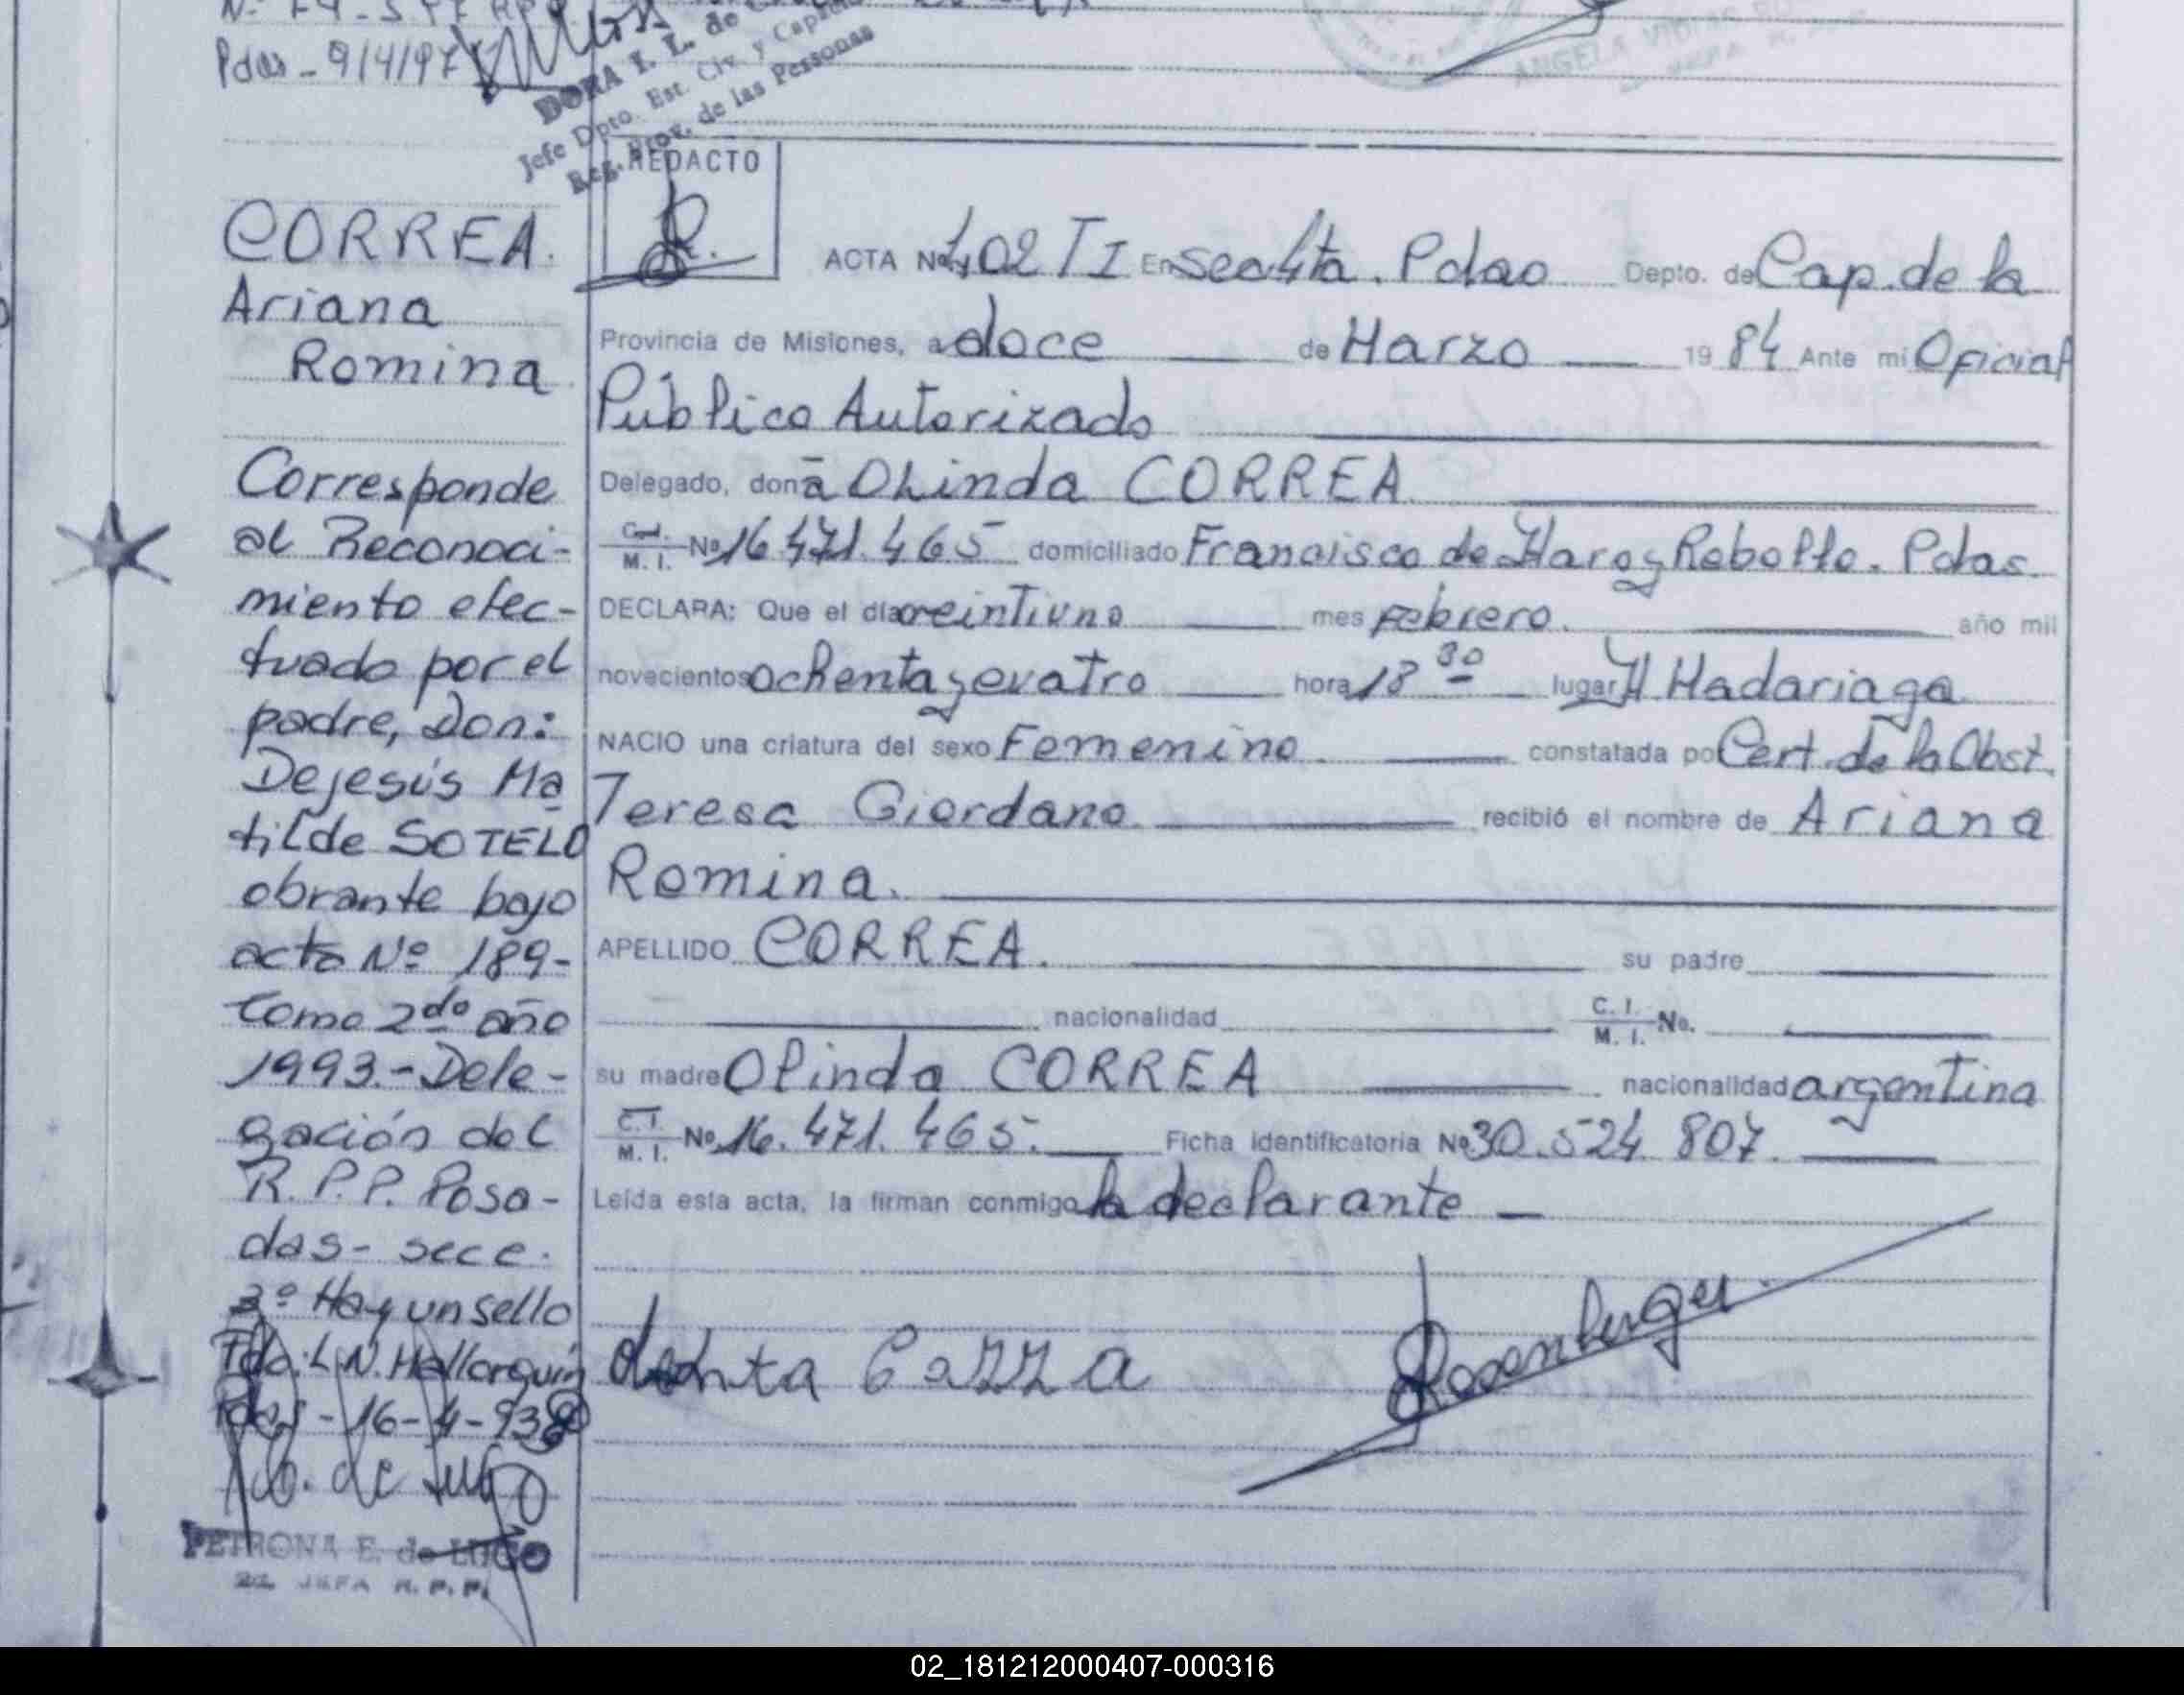 Pdas - 9/4/97
DORA I. L. de
Jefe Dpto. Est. Civ. y Capac.
Reg. Prov. de las Personas
ANGELA
REDACTO
CORREA.
Ariana
Romina
Corresponde
al Reconoci-
miento efec-
tuado por el
padre, Don:
Dejesús Ma
tilde SOTELO
obrante bajo
acta Nº 189-
tomo 2do año
1993.- Dele-
gación del
R.P.P. Posa-
das- secc.
3º Hay un sello
Fdo: L.N. Mallorquín
Pdas - 16-4-93
PETRONA E. de LUGO
JEFA R. P. P.
ACTA Nº 402 TI En Secc 4ta. Pdas Depto. de Cap. de la
Provincia de Misiones, a doce de Marzo 19 84 Ante mi Oficial
Público Autorizado
Delegado, doña Olinda CORREA
M. I. Nº 16.471.465 domiciliado Francisco de Haro y Rebollo. Pdas.
DECLARA: Que el día veintiuno mes Febrero. año mil
novecientos ochenta y cuatro hora 18 30 lugar H Madariaga
NACIO una criatura del sexo Femenino. constatada po Cert. de la Obst.
Teresa Giordano recibió el nombre de Ariana
Romina.
APELLIDO CORREA. su padre
nacionalidad C. I. M. I. No.
su madre Olinda CORREA nacionalidad argentina
C. I. M. I. Nº 16.471.465. Ficha identificatoria Nº 30.524.807.
Leída esta acta, la firman conmigo la declarante
Rosenberger
02_181212000407-000316